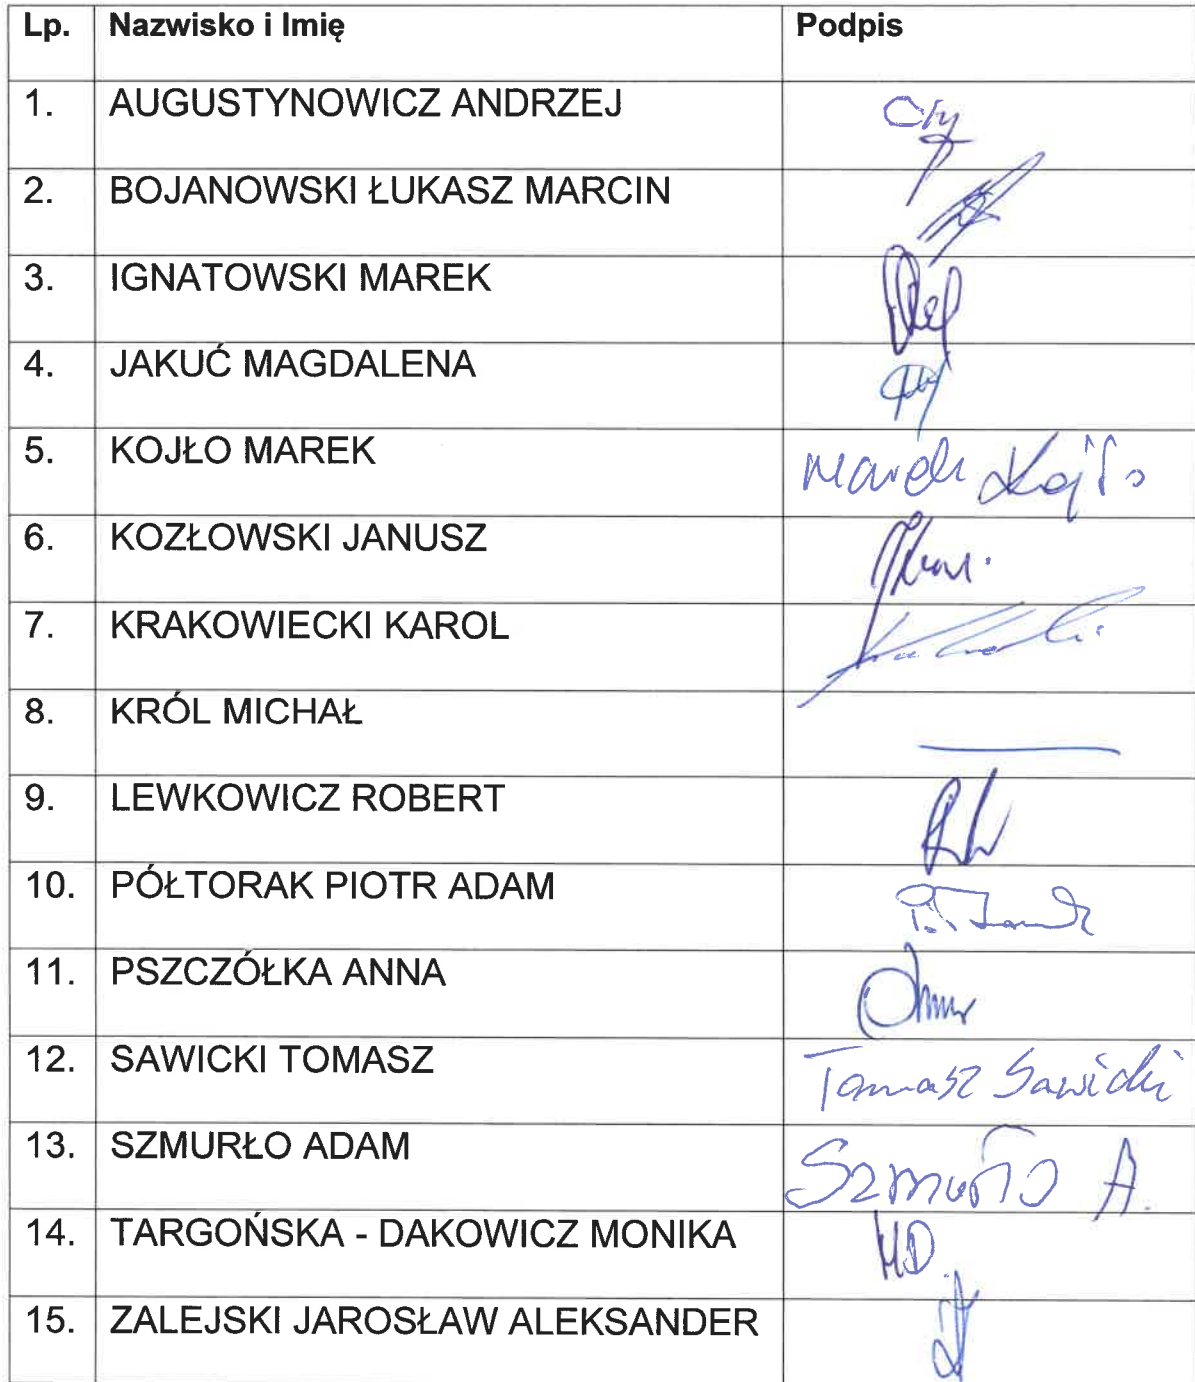 Lp. Nazwisko i Imię Podpis
1. AUGUSTYNOWICZ ANDRZEJ
2. BOJANOWSKI ŁUKASZ MARCIN
3. IGNATOWSKI MAREK
4. JAKUĆ MAGDALENA
5. KOJŁO MAREK Marek Kojło
6. KOZŁOWSKI JANUSZ
7. KRAKOWIECKI KAROL
8. KRÓL MICHAŁ
9. LEWKOWICZ ROBERT
10. PÓŁTORAK PIOTR ADAM
11. PSZCZÓŁKA ANNA
12. SAWICKI TOMASZ Tomasz Sawicki
13. SZMURŁO ADAM Szmurło A.
14. TARGOŃSKA - DAKOWICZ MONIKA MD.
15. ZALEJSKI JAROSŁAW ALEKSANDER